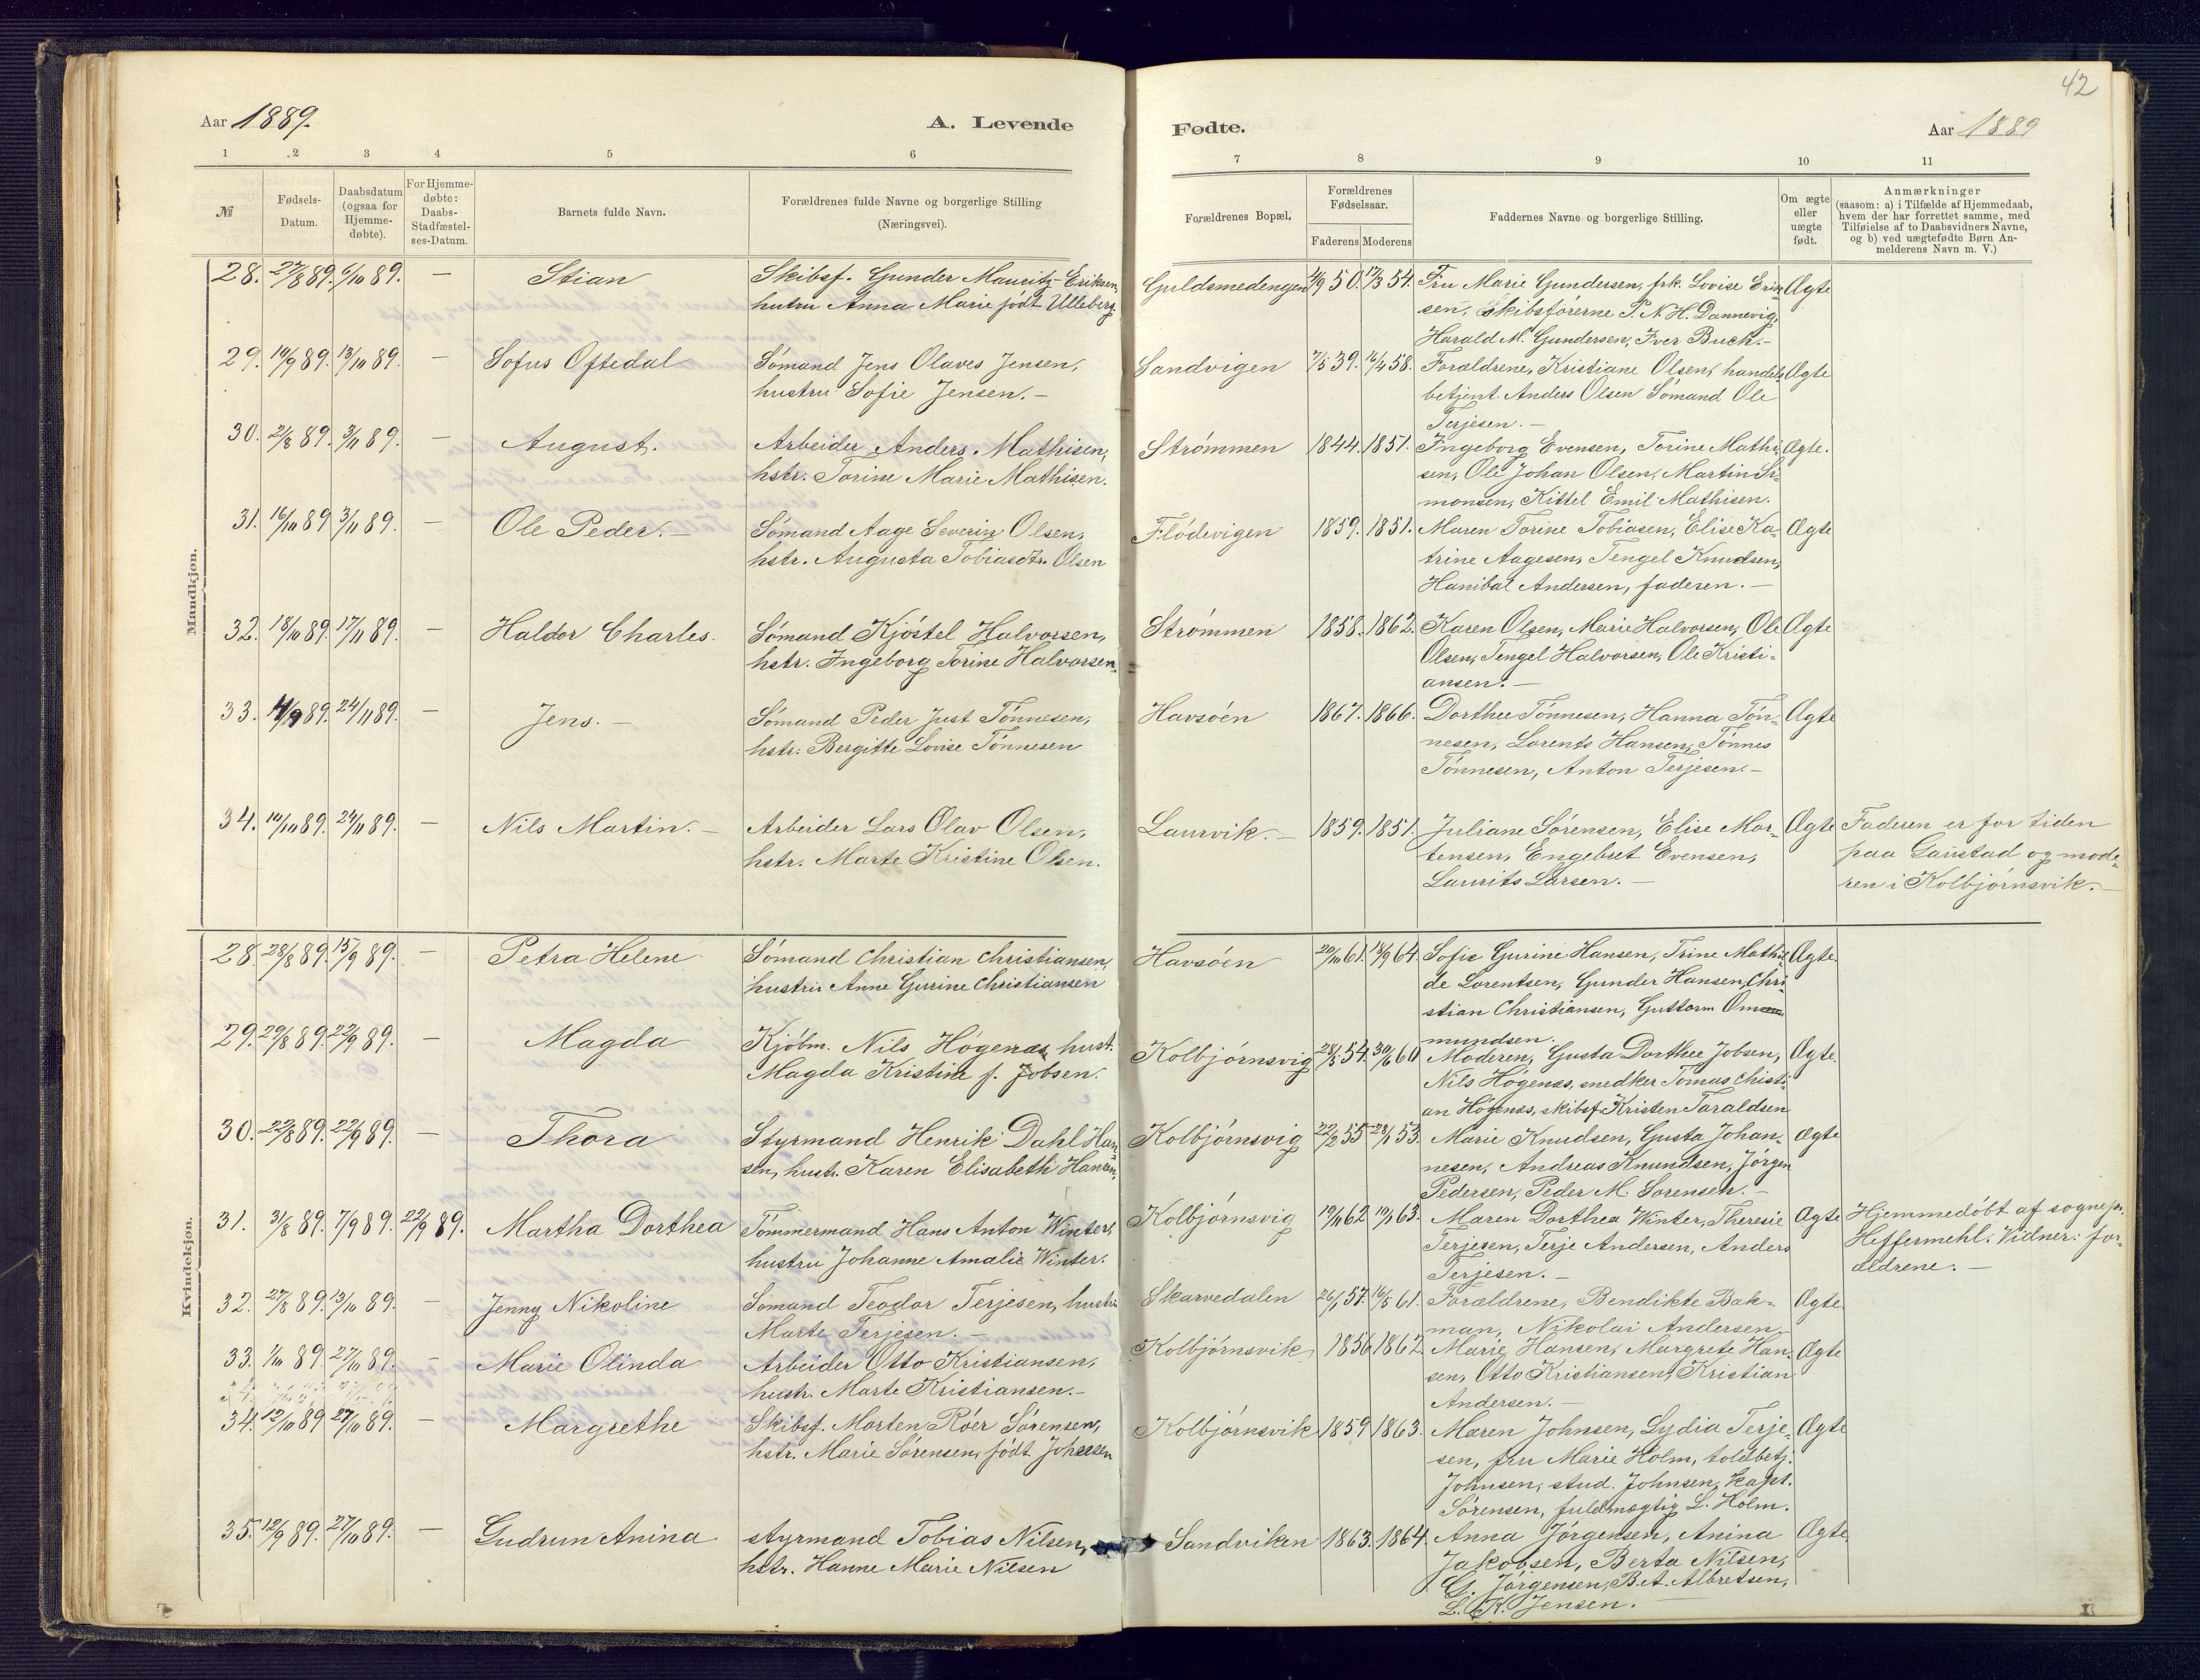 42
Aar 1889.
A. Levende
Fødte.
Aar 1889
1 2 3 4 5 6 7 8 9 10 11
№
Fødsels-
Datum.
Daabsdatum
(ogsaa for
Hjemme-
døbte).
For Hjemme-
døbte:
Daabs-
Stadfæstel-
ses-Datum.
Barnets fulde Navn.
Forældrenes fulde Navne og borgerlige Stilling
(Næringsvei).
Forældrenes Bopæl.
Forældrenes
Fødselsaar.
Faderens Moderens
Faddernes Navne og borgerlige Stilling.
Om ægte
eller
uægte
født.
Anmærkninger
(saasom: a) i Tilfælde af Hjemmedaab,
hvem der har forrettet samme, med
Tilføielse af to Daabsvidners Navne,
og b) ved uægtefødte Børn An-
melderens Navn m. V.)
Mandkjøn.
28. 27/8 89. 6/10 89. — Stian
Skibsf. Gunder Mauritz Eriksen,
hustru Anna Marie født Ulleberg.
Guldsmedengen 4/9 50. 17/3 54.
Fru Marie Gundersen, frk. Lovise Erik-
sen, Skibsførerne P. N. H. Dannevig,
Harald M. Gundersen, Iver Buch.—
Ægte
29. 19/9 89. 13/10 89. — Sofus Oftedal
Sömand Jens Olaves Jensen,
hustru Sofie Jensen.—
Sandvigen 7/5 39. 16/4 58.
Forældrene, Kristiane Olsen, handels-
betjent Anders Olsen Sömand Ole
Terjesen.—
Ægte
30. 2/8 89. 3/11 89. — August.
Arbeider Anders Mathisen,
hstr. Torine Marie Mathisen.
Strömmen 1844. 1851.
Ingeborg Evensen, Torine Mathi-
sen, Ole Johan Olsen, Martin Si-
monsen, Kittel Emil Mathisen.
Ægte.
31. 16/10 89 3/11 89. — Ole Peder.—
Sömand Aage Severin Olsen,
hstr. Augusta Tobiasdtr. Olsen
Flödevigen 1859. 1851.
Maren Torine Tobiasen, Elise Ka-
trine Aagesen, Tengel Knudsen,
Hanibal Andersen, faderen.—
Ægte
32. 18/10 89. 17/11 89. — Haldor Charles.
Sömand Kjöstel Halvorsen,
hstr. Ingeborg Torine Halvorsen.
Strömmen 1858. 1862.
Karen Olsen, Marie Halvorsen, Ole
Olsen, Tengel Halvorsen, Ole Kristi-
ansen.—
Ægte
33. 4/9 89. 24/11 89. — Jens.—
Sömand Peder Just Tönnesen,
hstr. Bergitte Lovise Tönnesen
Havsöen 1867. 1866.
Dorthee Tönnesen, Hanna Tön-
nesen, Lorents Hansen, Tönnes
Tönnesen, Anton Terjesen.—
Ægte
34. 10/10 89. 24/11 89. — Nils Martin.—
Arbeider Lars Olav Olsen,
hstr. Marte Kristine Olsen.
Laurvik.— 1859. 1851.
Juliane Sörensen, Elise Mor-
tensen, Engebret Evensen,
Laurits Larsen.—
Ægte
Faderen er for tiden
paa Gaustad og mode-
ren i Kolbjörnsvik.—
Kvindekjøn.
28. 28/8 89. 15/9 89. — Petra Helene
Sömand Christian Christiansen,
hustru Anne Gurine Christiansen
Havsöen 20/10 61. 18/9 64.
Sofie Gurine Hansen, Trine Mathil-
de Lorentsen, Gunder Hansen, Chri-
stian Christiansen, Guttorm Om
mundsen.
Ægte.
29. 29/8 89. 22/9 89. — Magda
Kjöbm. Nils Högenæs, hust.
Magda Kristine f. Jobsen.
Kolbjörnsvig 28/5 54. 30/6 60
Moderen, Gusta Dorthee Jobsen,
Nils Högenæs, snedker Tomas Christi-
an Högenæs, skibsf. Kristen Taraldsen
Ægte.
30. 22/8 89. 22/9 89. — Thora
Styrmand Henrik Dahl Han-
sen, hust. Karen Elisabeth Hansen.
Kolbjörnsvig 22/2 55 28/1 53.
Marie Knudsen, Gusta Johan-
nesen, Andreas Knundsen, Jörgen
Pedersen, Peder M. Sorensen.—
Ægte
31. 31/8 89. 7/9 89. 22/9 89. Martha Dorthea
Tömmermand Hans Anton Winter,
hustru Johanne Amalie Winter.
Kolbjörnsvig 12/11 62 10/1 63.
Maren Dorthea Winter, Theresie
Terjesen, Terje Andersen, Anders
Terjesen.—
Ægte
Hjemmedöbt af sognepr.
Heffermehl. Vidner: for-
ældrene.—
32. 27/8 89. 13/10 89. — Jenny Nikoline
Sömand Teodor Terjesen, hustru
Marte Terjesen.—
Skarvedalen 26/1 57. 16/5 61.
Forældrene, Bendikte Bak-
man, Nikolai Andersen
Ægte.
33. 1/10 89 27/10 89. — Marie Olinda
Arbeider Otto Kristiansen,
hustr. Marte Kristiansen.—
Kolbjörnsvik 1856 1862
Marie Hansen, Margrete Han-
sen, Otto Kristiansen, Kristian
Andersen.—
Ægte
34. 12/10 89 27/10 89. — Margrethe
Skibsf. Morten Röer Sörensen,
hstr. Marie Sörensen, født Johnsen
Kolbjörnsvik 1859 1863.
Maren Johnsen, Lydia Terje-
sen, fru Marie Holm, toldbetj.
Johnsen, stud. Johnsen, Kapt.
Sörensen, fuldmægtig L. Holm.
Ægte
35. 12/9 89. 27/10 89. — Gudrun Anina
styrmand Tobias Nilsen,
hstr. Hanne Marie Nilsen
Sandviken 1863. 1864.
Anna Jörgensen, Anina
Jakobsen, Berta Nilsen,
G. Jörgensen, B. A. Albretsen,
L. K. Jensen.—
Ægte.